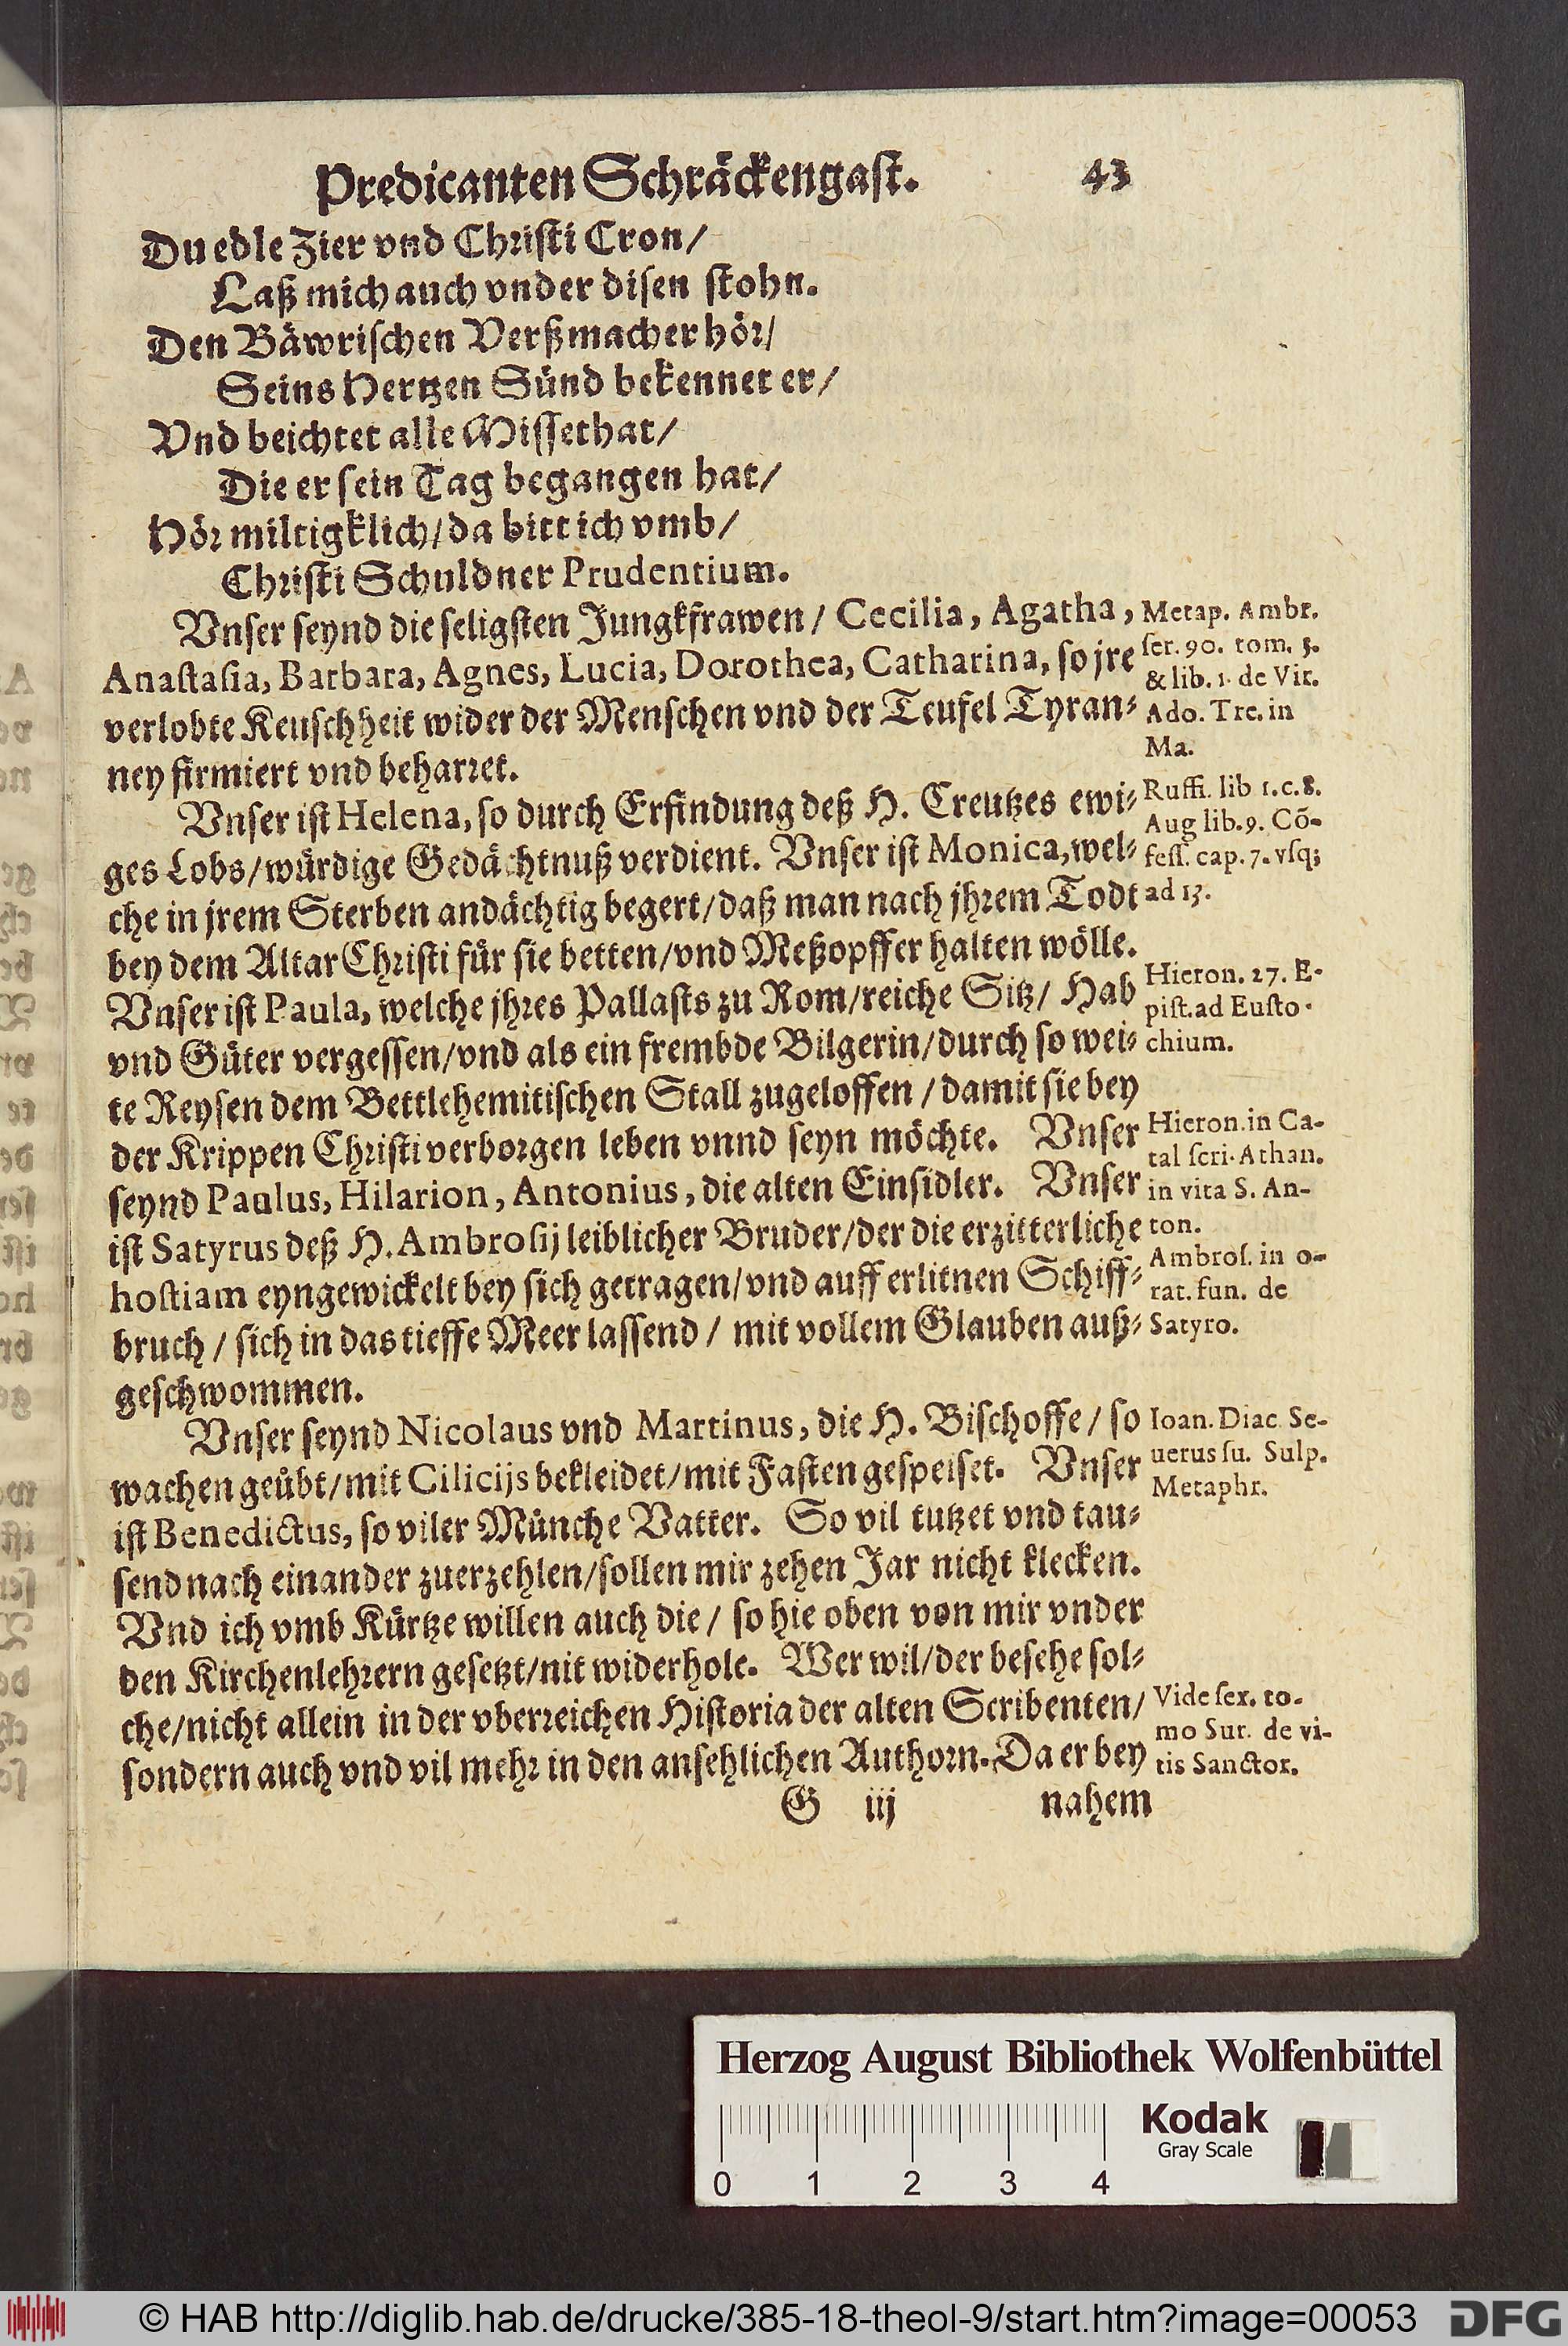 Predicanten Schräckengast. 43
Du edle Zier vnd Christi Cron/
Laß mich auch vnder disen stohn.
Den Bäwrischen Verßmacher hör/
Seins Hertzen Sünd bekennet er/
Vnd beichtet alle Missethat/
Die er sein Tag begangen hat/
Hör miltigklich/da bitt ich vmb/
Christi Schuldner Prudentium.
Vnser seynd die seligsten Jungkfrawen / Cecilia, Agatha,
Anastasia, Barbara, Agnes, Lucia, Dorothea, Catharina, so jre
verlobte Keuschheit wider der Menschen vnd der Teufel Tyran-
ney firmiert vnd beharret.
Metap. Ambr.
ser. 90. tom. 5.
& lib. 1. de Vir.
Ado. Tre. in
Ma.
Vnser ist Helena, so durch Erfindung deß H. Creutzes ewi-
ges Lobs/würdige Gedächtnuß verdient. Vnser ist Monica, wel-
che in jrem Sterben andächtig begert/daß man nach jhrem Todt
bey dem Altar Christi für sie betten/vnd Meßopffer halten wölle.
Vnser ist Paula, welche jhres Pallasts zu Rom/reiche Sitz/ Hab
vnd Güter vergessen/vnd als ein frembde Bilgerin/durch so wei-
te Reysen dem Bettlehemitischen Stall zugeloffen / damit sie bey
der Krippen Christi verborgen leben vnnd seyn möchte. Vnser
seynd Paulus, Hilarion, Antonius, die alten Einsidler. Vnser
ist Satyrus deß H. Ambrosij leiblicher Bruder/der die erzitterliche
hostiam eyngewickelt bey sich getragen/vnd auff erlitnen Schiff-
bruch / sich in das tieffe Meer lassend / mit vollem Glauben auß-
geschwommen.
Ruffi. lib 1. c. 8.
Aug lib. 9. Cõ-
fess. cap. 7. vsq;
ad 13.
Hieron. 27. E-
pist. ad Eusto-
chium.
Hieron. in Ca-
tal scri. Athan.
in vita S. An-
ton.
Ambros. in o-
rat. fun. de
Satyro.
Vnser seynd Nicolaus vnd Martinus, die H. Bischoffe / so
wachen geübt/mit Cilicijs bekleidet/mit Fasten gespeiset. Vnser
ist Benedictus, so viler Münche Vatter. So vil tutzet vnd tau-
send nach einander zuerzehlen/sollen mir zehen Jar nicht klecken.
Vnd ich vmb Kürtze willen auch die / so hie oben von mir vnder
den Kirchenlehrern gesetzt/nit widerhole. Wer wil/der besehe sol-
che/nicht allein in der vberreichen Historia der alten Scribenten/
sondern auch vnd vil mehr in den ansehlichen Authorn. Da er bey
Ioan. Diac. Se-
uerus su. Sulp.
Metaphr.
Vide sex. to-
mo Sur. de vi-
tis Sanctor.
G iij nahem
Herzog August Bibliothek Wolfenbüttel
Kodak
Gray Scale
0 1 2 3 4
© HAB http://diglib.hab.de/drucke/385-18-theol-9/start.htm?image=00053
DFG